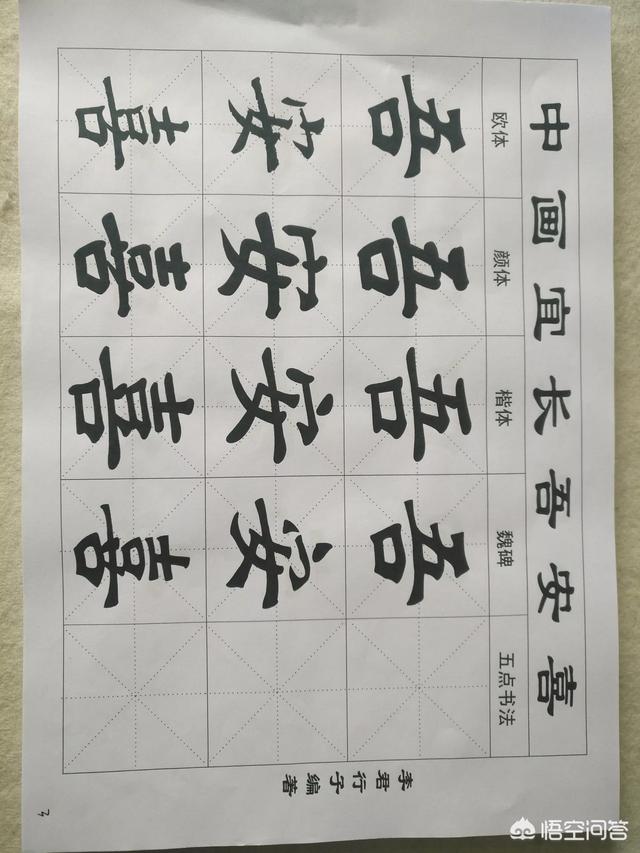 中画宜长吾安喜
欧体 颜体 楷体 魏碑 五点书法
吾 吾 吾 吾
安 安 安 安
喜 喜 喜 喜
李君行子编著
3
悟空问答